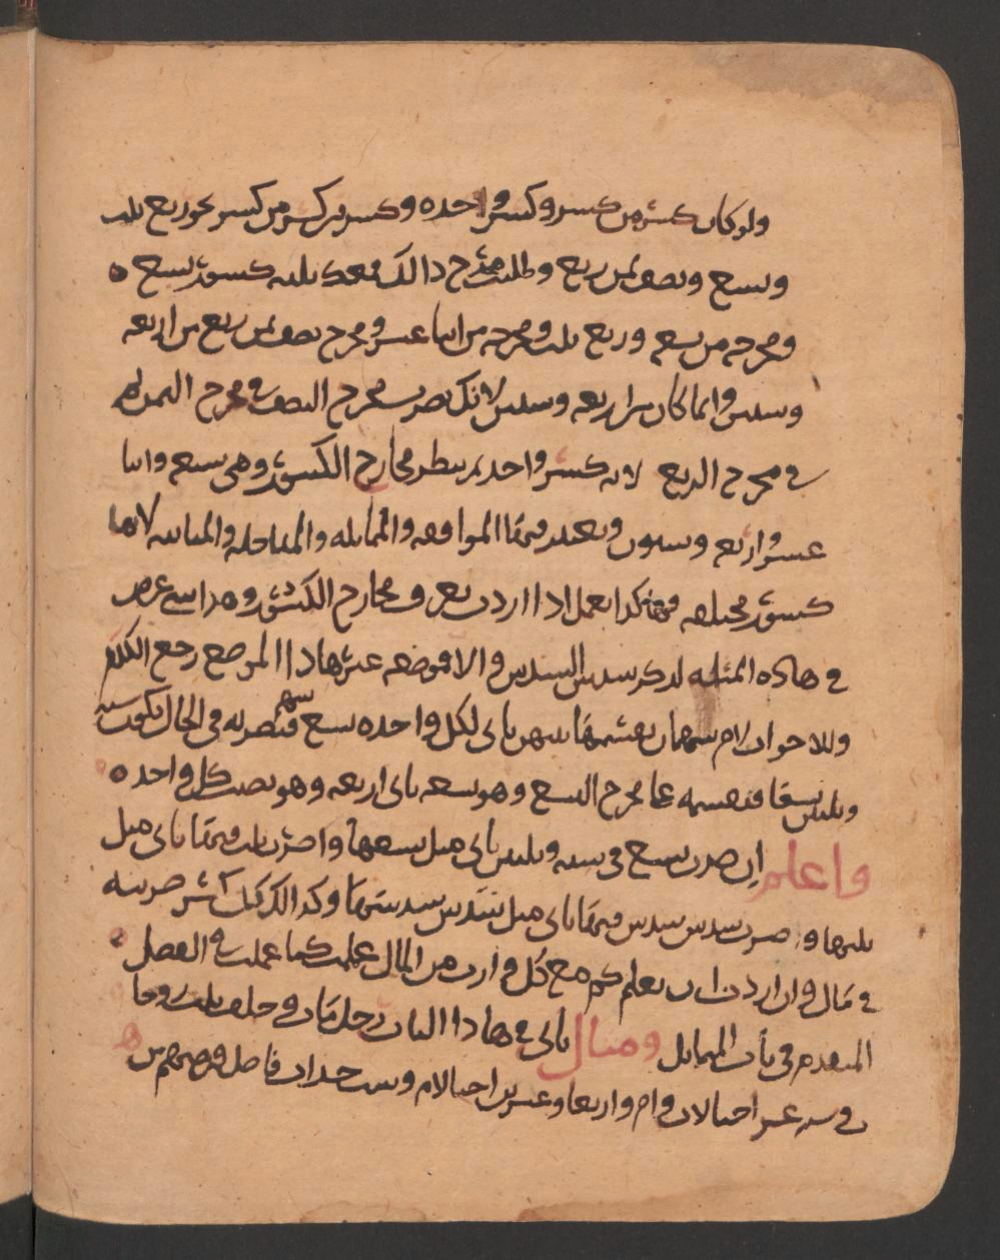 ولو كان كسر من كسر وكسر واحده وكسر من كسر من كسر نحو ربع ثلث
وتسع ونصف ثمن ربع وطلبت مخرج دالك فمعك ثلثه كسور تسع
ومخرجه من تسعه وربع ثلث ومخرجه من اثنا عشر ومخرج نصف ثمن ربع من اربعه
وستين وانما كان من اربعه وستين لانك تضرب مخرج النصف في مخرج الثمن ثم
في مخرج الربع لانه كسر واحد ثم تنظر مخارج الكسور وهي تسعه واثنا
عشر واربعه وستون وتعتبر فيها الموافقه والمماثله والمداخله والمباينه لانها
كسور مختلفه فهاكدا تعمل ادا اردت تعرف مخارج الكسور وهدا شي عرض
في هاده المثله لدكر سدس السدس والا فموضعه غير هادا الموضع رجع الكلام
وللاخوان لام سهمان تقسمها بينهن ياتي لكل واحده تسع سهم فتضربه في الحال يكون سته
وثلثين تسعا فتقسمه علا مخرج التسع وهو تسعه ياتي اربعه وهو نصيب كل واحده
واعلم ان ضربت تسع في سته وثلثين ياتي مثل تسعها واضرب ثلث فيها ياتي مثل
ثلثها واضرب سدس سدس فيها ياتي مثل سدس سدسها وكدالك كل كسر ضربته
في مال وان اردت ان تعلم كم مع كل وارث من المال عملت كما عملت في الفصل
المتقدم في باب المماثل ومثال ياتي في هادا الباب رجل مات وخلف ثلث زوجا
في سته عشر اختا لاب وام واربعا وعشرين اختا لام وست جدات فاصل فريضتهم من